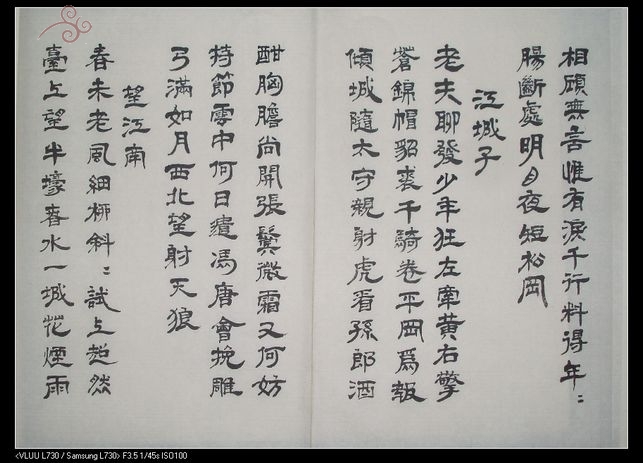 相顧無言惟有淚千行料得年〻
腸斷處明月夜短松岡
江城子
老夫聊發少年狂左牽黃右擎
蒼錦帽貂裘千騎卷平岡爲報
傾城隨太守親射虎看孫郎酒
酣胸膽尚開張鬢微霜又何妨
持節雲中何日遣馮唐會挽雕
弓滿如月西北望射天狼
望江南
春未老風細柳斜〻試上超然
臺上望半壕春水一城花煙雨
<VLUU L730 / Samsung L730> F3.5 1/45s ISO100